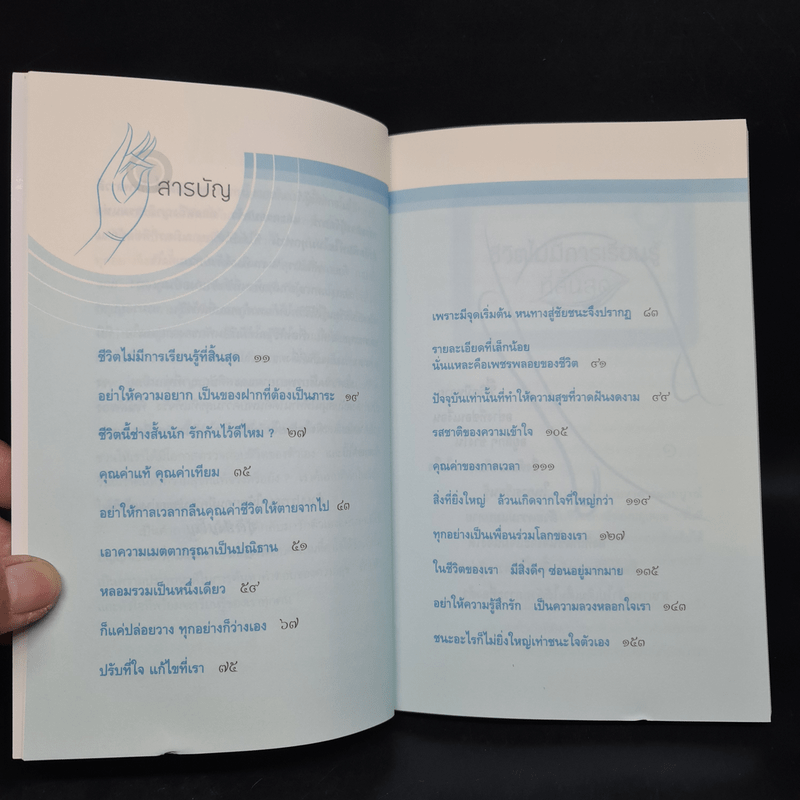 สารบัญ
ชีวิตไม่มีการเรียนรู้ที่สิ้นสุด ๑๑
อย่าให้ความอยาก เป็นของฝากที่ต้องเป็นภาระ ๑๙
ชีวิตนี้ช่างสั้นนัก รักกันไว้ดีไหม ? ๒๗
คุณค่าแท้ คุณค่าเทียม ๓๕
อย่าให้กาลเวลากลืนคุณค่าชีวิตให้ตายจากไป ๔๓
เอาความเมตตากรุณาเป็นปณิธาน ๕๑
หลอมรวมเป็นหนึ่งเดียว ๕๙
ก็แค่ปล่อยวาง ทุกอย่างก็ว่างเอง ๖๗
ปรับที่ใจ แก้ไขที่เรา ๗๕
เพราะมีจุดเริ่มต้น หนทางสู่ชัยชนะจึงปรากฏ ๘๓
รายละเอียดที่เล็กน้อย
นั่นแหละคือเพชรพลอยของชีวิต ๙๑
ปัจจุบันเท่านั้นที่ทำให้ความสุขที่วาดฝันงดงาม ๙๙
รสชาติของความเข้าใจ ๑๐๕
คุณค่าของกาลเวลา ๑๑๑
สิ่งที่ยิ่งใหญ่ ล้วนเกิดจากใจที่ใหญ่กว่า ๑๑๙
ทุกอย่างเป็นเพื่อนร่วมโลกของเรา ๑๒๗
ในชีวิตของเรา มีสิ่งดีๆ ซ่อนอยู่มากมาย ๑๓๕
อย่าให้ความรู้สึกรัก เป็นความลวงหลอกใจเรา ๑๔๓
ชนะอะไรก็ไม่ยิ่งใหญ่เท่าชนะใจตัวเอง ๑๕๓